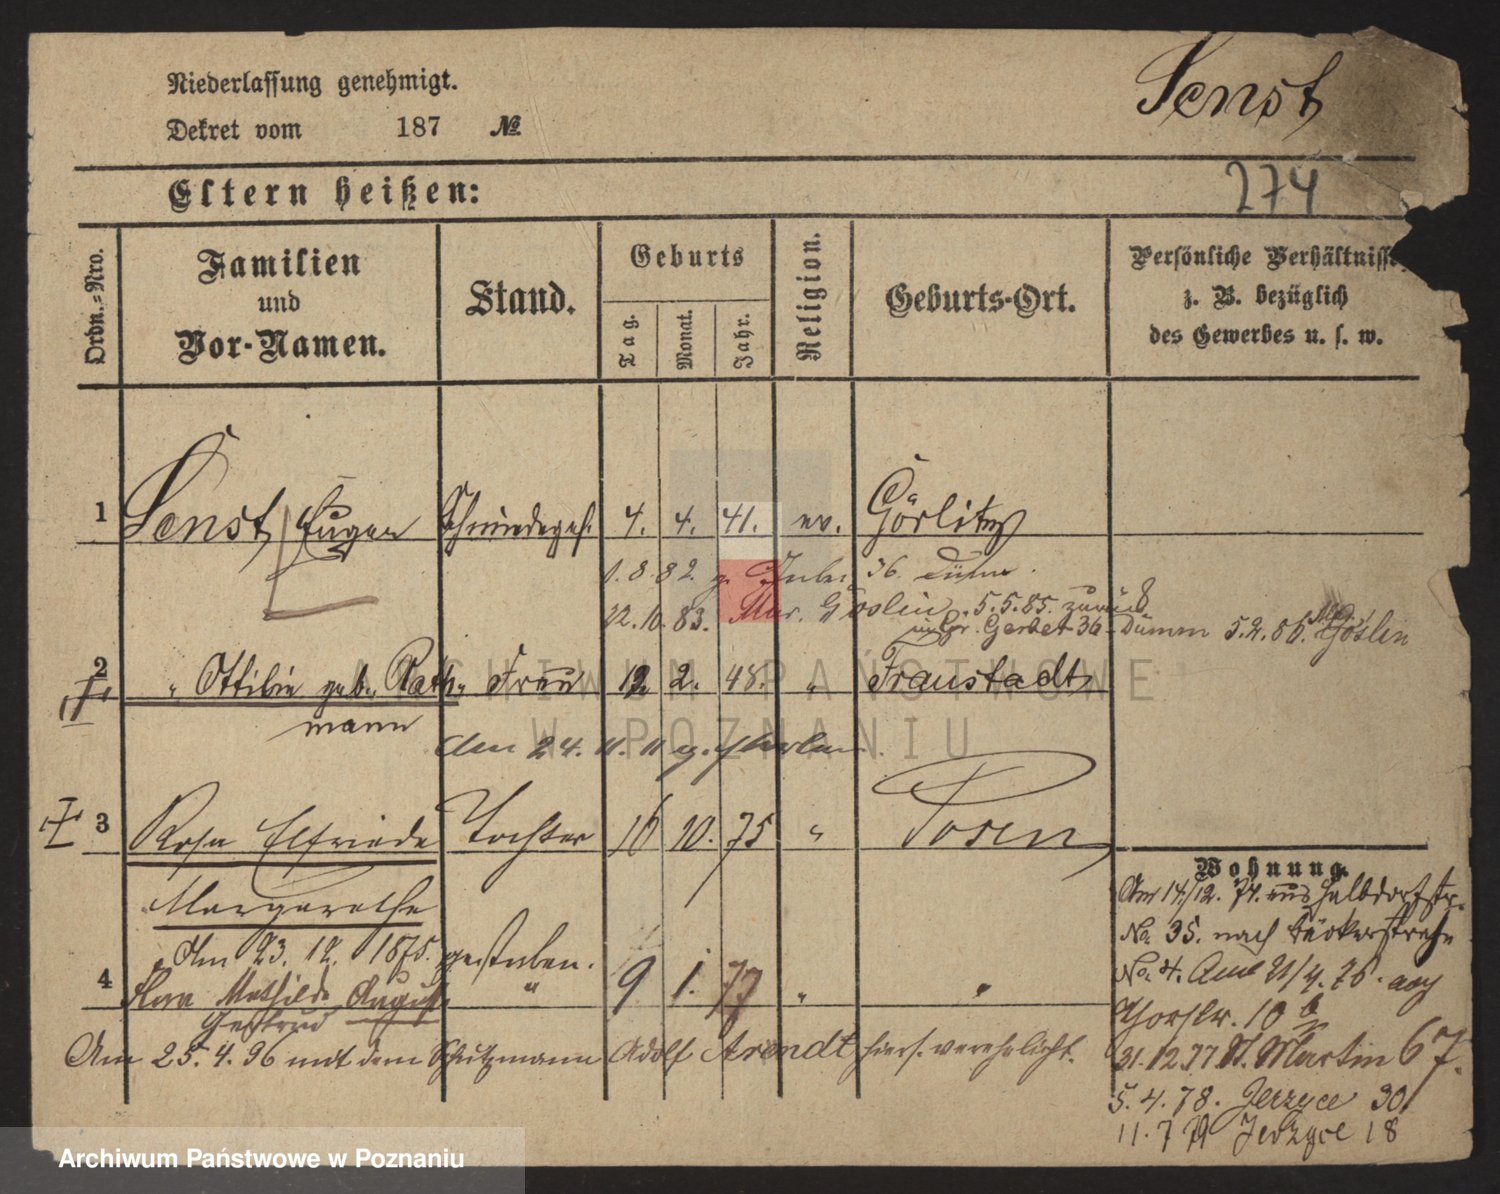 Niederlassung genehmigt.
Senst
Dekret vom 187 №
Eltern heißen:
274
Ordn.-Nro.
Familien und Vor-Namen.
Stand.
Geburts
Tag.
Monat.
Jahr.
Religion.
Geburts-Ort.
Persönliche Verhältnisse
z. B. bezüglich
des Gewerbes u. s. w.
1 Senst, Eugen Schmiedeges. 4. 4. 41. ev. Görlitz
1. 8. 82. 36.
12. 10. 83. Göslin 5.5.85. zurück
36 Dümm 5.2.86. Göslin
2 " Ottilie geb. Rath- Frau 12 2. 48. " Fraustadt
mann
den 24. 11. 11
3 Rosa Elfriede Tochter 16 10. 75 " Posen
Margarethe
Am 23. 12. 1875. gestorben.
4 Flora Mathilde August " 9 1. 77 " "
Gertrud
Am 25.4.96 mit dem Schutzmann Adolf Arendt hiers. verehelicht.
Wohnung.
Am 14./12. 74. aus Halbdorfstr.
No. 35. nach Bäckerstraße
No. 4. 21/4. 76.
Thorstr. 10 b
31.12.77 St. Martin 67.
5. 4. 78. Jerzyce 30
11. 7 79 Jerzyce 18
ARCHIWUM PAŃSTWOWE
W POZNANIU
Archiwum Państwowe w Poznaniu